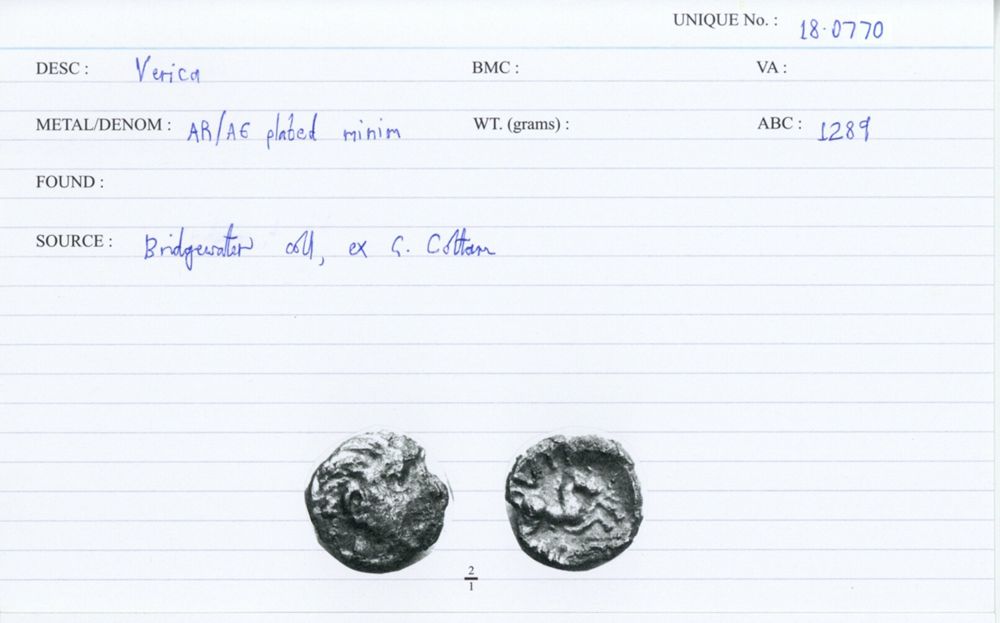 UNIQUE No. : 18.0770
DESC : Verica BMC : VA :
METAL/DENOM : AR/AE plated minim WT. (grams) : ABC : 1289
FOUND :
SOURCE : Bridgewater coll, ex G. Cottam
2
1